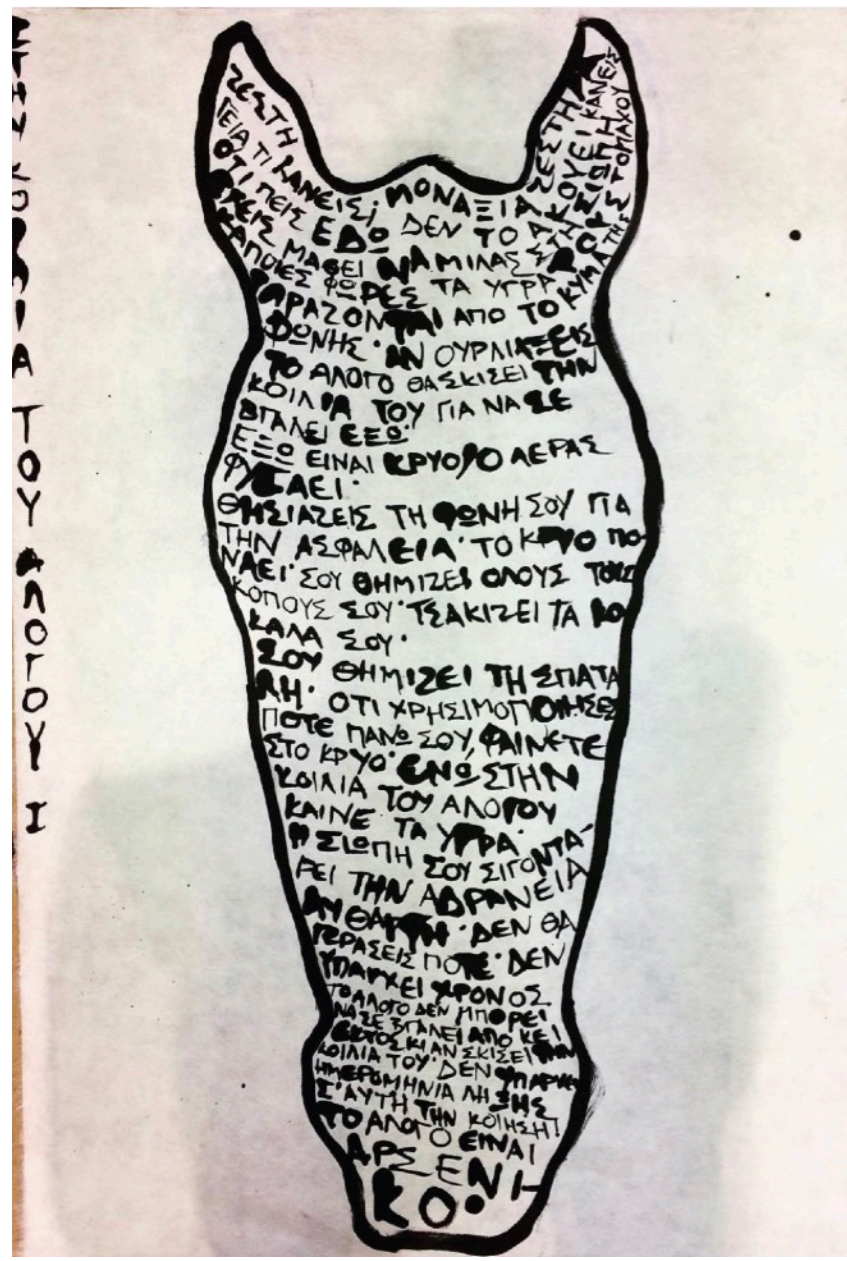 ΣΤΗΝ ΚΟΙΛΙΑ ΤΟΥ ΑΛΟΓΟΥ Ι
ΖΕΣΤΗ
ΓΕΙΑ ΤΙ ΚΑΝΕΙΣ; ΜΟΝΑΞΙΑ ΖΕΣΤΗ
ΟΤΙ ΠΕΙΣ ΕΔΩ ΔΕΝ ΤΟ ΑΚΟΥΕΙ ΚΑΝΕΙΣ
ΜΑΘΕΙ ΝΑ ΜΙΛΑΣ ΣΤΗ ΣΙΩΠΗ
ΚΑΠΟΙΕΣ ΦΩΡΕΣ ΤΑ ΥΓΡΑ ΤΟΥ ΣΤΟΜΑΧΟΥ
ΤΑΡΑΖΟΝΤΑΙ ΑΠΟ ΤΟ ΚΥΜΑ ΤΗΣ
ΦΩΝΗΣ· ΑΝ ΟΥΡΛΙΑΞΕΙΣ
ΤΟ ΑΛΟΓΟ ΘΑ ΣΚΙΣΕΙ ΤΗΝ
ΚΟΙΛΙΑ ΤΟΥ ΓΙΑ ΝΑ ΣΕ
ΒΓΑΛΕΙ ΕΞΩ·
ΕΞΩ ΕΙΝΑΙ ΚΡΥΟ Ο ΑΕΡΑΣ
ΦΥΣΑΕΙ·
ΘΗΣΙΑΖΕΙΣ ΤΗ ΦΩΝΗ ΣΟΥ ΓΙΑ
ΤΗΝ ΑΣΦΑΛΕΙΑ· ΤΟ ΚΡΥΟ ΠΟ
ΝΑΕΙ· ΣΟΥ ΘΗΜΙΖΕΙ ΟΛΟΥΣ ΤΟΥΣ
ΚΟΠΟΥΣ ΣΟΥ· ΤΣΑΚΙΖΕΙ ΤΑ ΚΟ
ΚΑΛΑ ΣΟΥ·
ΣΟΥ ΘΗΜΙΖΕΙ ΤΗ ΣΠΑΤΑ
ΛΗ· ΟΤΙ ΧΡΗΣΙΜΟΠΟΙΗΣΕΣ
ΠΟΤΕ ΠΑΝΩ ΣΟΥ, ΦΑΙΝΕΤΕ
ΣΤΟ ΚΡΥΟ· ΕΝΩ ΣΤΗΝ
ΚΟΙΛΙΑ ΤΟΥ ΑΛΟΓΟΥ
ΚΑΙΝΕ ΤΑ ΥΓΡΑ·
Η ΣΙΩΠΗ ΣΟΥ ΣΙΓΟΝΤΑ-
ΡΕΙ ΤΗΝ ΑΔΡΑΝΕΙΑ
ΑΥΘΑΡΤΗ· ΔΕΝ ΘΑ
ΓΕΡΑΣΕΙΣ ΠΟΤΕ· ΔΕΝ
ΥΠΑΡΧΕΙ ΧΡΟΝΟΣ
ΤΟ ΑΛΟΓΟ ΔΕΝ ΜΠΟΡΕΙ
ΝΑ ΣΕ ΒΓΑΛΕΙ ΑΠΟ ΚΕΙ
ΕΚΤΟΣ ΚΙ ΑΝ ΣΚΙΣΕΙ ΤΗΝ
ΚΟΙΛΙΑ ΤΟΥ· ΔΕΝ ΥΠΑΡΧΕΙ
ΗΜΕΡΟΜΗΝΙΑ ΛΗΞΗΣ
Σ' ΑΥΤΗ ΤΗΝ ΚΟΙΗΣΗ!
ΤΟ ΑΛΟΓΟ ΕΙΝΑΙ
ΑΡΣΕΝΙ-
ΚΟ·